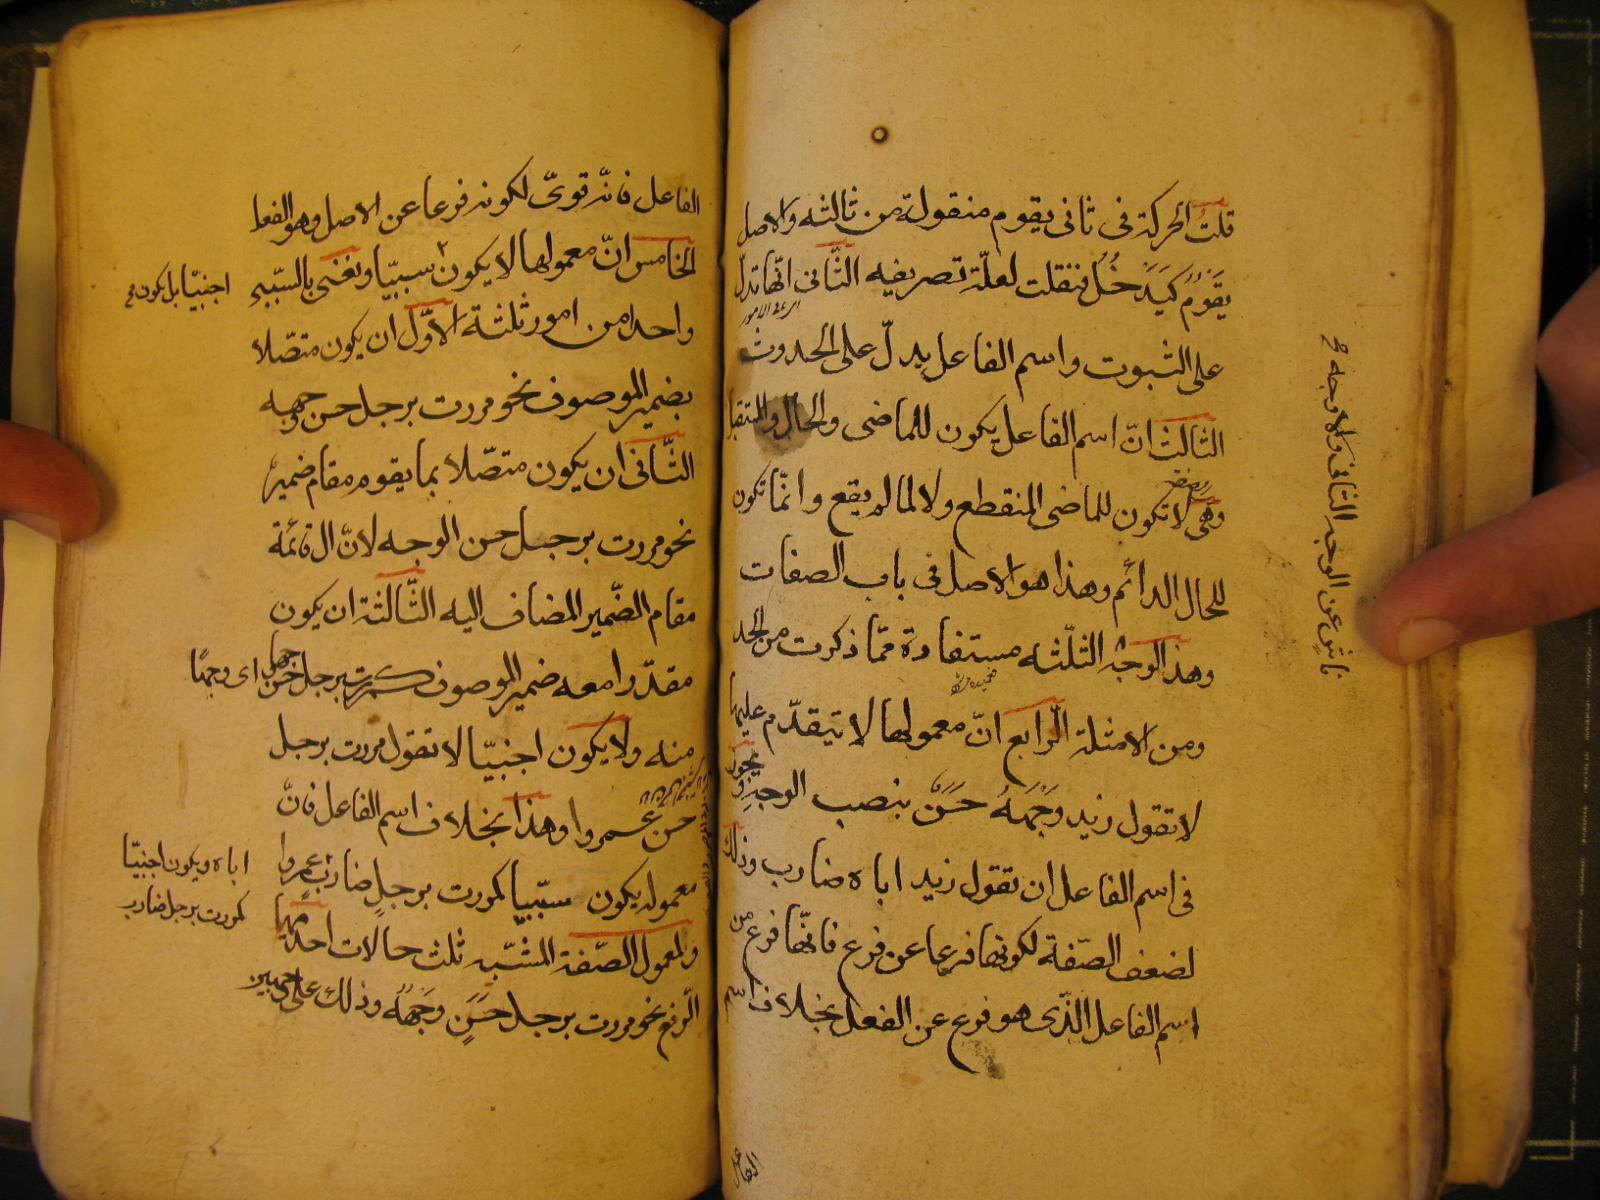 قلتُ الحركة فى ثانى يقوم منقولة من ثالثه والاصل
يَقْوُمُ كَيَدْخُلُ فنقلت لعلّة تصريفيه الثّانى انّها تدلّ
على الثبوت واسم الفاعل يدلّ على الحدوث
الثالث انّ اسم الفاعل يكون للماضى والحال والمستقبل
وهى لا تكون للماضى المنقطع ولا لما لم يقع وانّما تكون
للحال الدائم وهذا هو الاصل فى باب الصفات
وهذ الوجه الثلّثه مستفادة ممّا ذكرت من الحد
ومن الامثلة الرّابع انّ معمولها لا يتقدّم عليها
لا تقول زيد وَجْهَهُ حَسَنٌ بنصب الوجه ويجوز
فى اسم الفاعل ان تقول زيد اباه ضارب وذلك
لضعف الصّفة لكونها فرعا عن فرع فانّها فرع من
اسم الفاعل الذّى هو فرع عن الفعل بخلاف اسم
الفاعل
ناش عن الوجه الثانى والاوجه
الفاعل فانّه قوىّ لكونه فرعا عن الاصل وهو الفعل
الخامس انّ معمولها لا يكون سببيّا ونعنى بالسّببى
اجنبيّا بل يكون
واحدا من امور ثلثة الاوّل ان يكون متصّلا
بضمير الموصوف نحو مررت برجل حسن وجهه
الثّانى ان يكون متصّلا بما يقوم مقام ضميره
نحو مررت برجل حسن الوجه لانّ ال قائمة
مقام الضّمير المضاف اليه الثّالثة ان يكون
مقدّرا معه ضمير الموصوف كمررت برجل حسن وجها اى وجهًا
منه ولا يكون اجنبيّا لا تقول مررت برجل
حسن عمروا وهذا بخلاف اسم الفاعل فانّ
معموله يكون سبّبيا كمررت برجلٍ ضاربٍ عمروا
اباه ويكون اجنبيّا
كمررت برجل ضارب
ولمعمول الصّفة المشبّهه ثلث حالات احدٰيها
الرّفع نحو مررت برجل حَسَنٍ وَجْهُهُ وذلك على